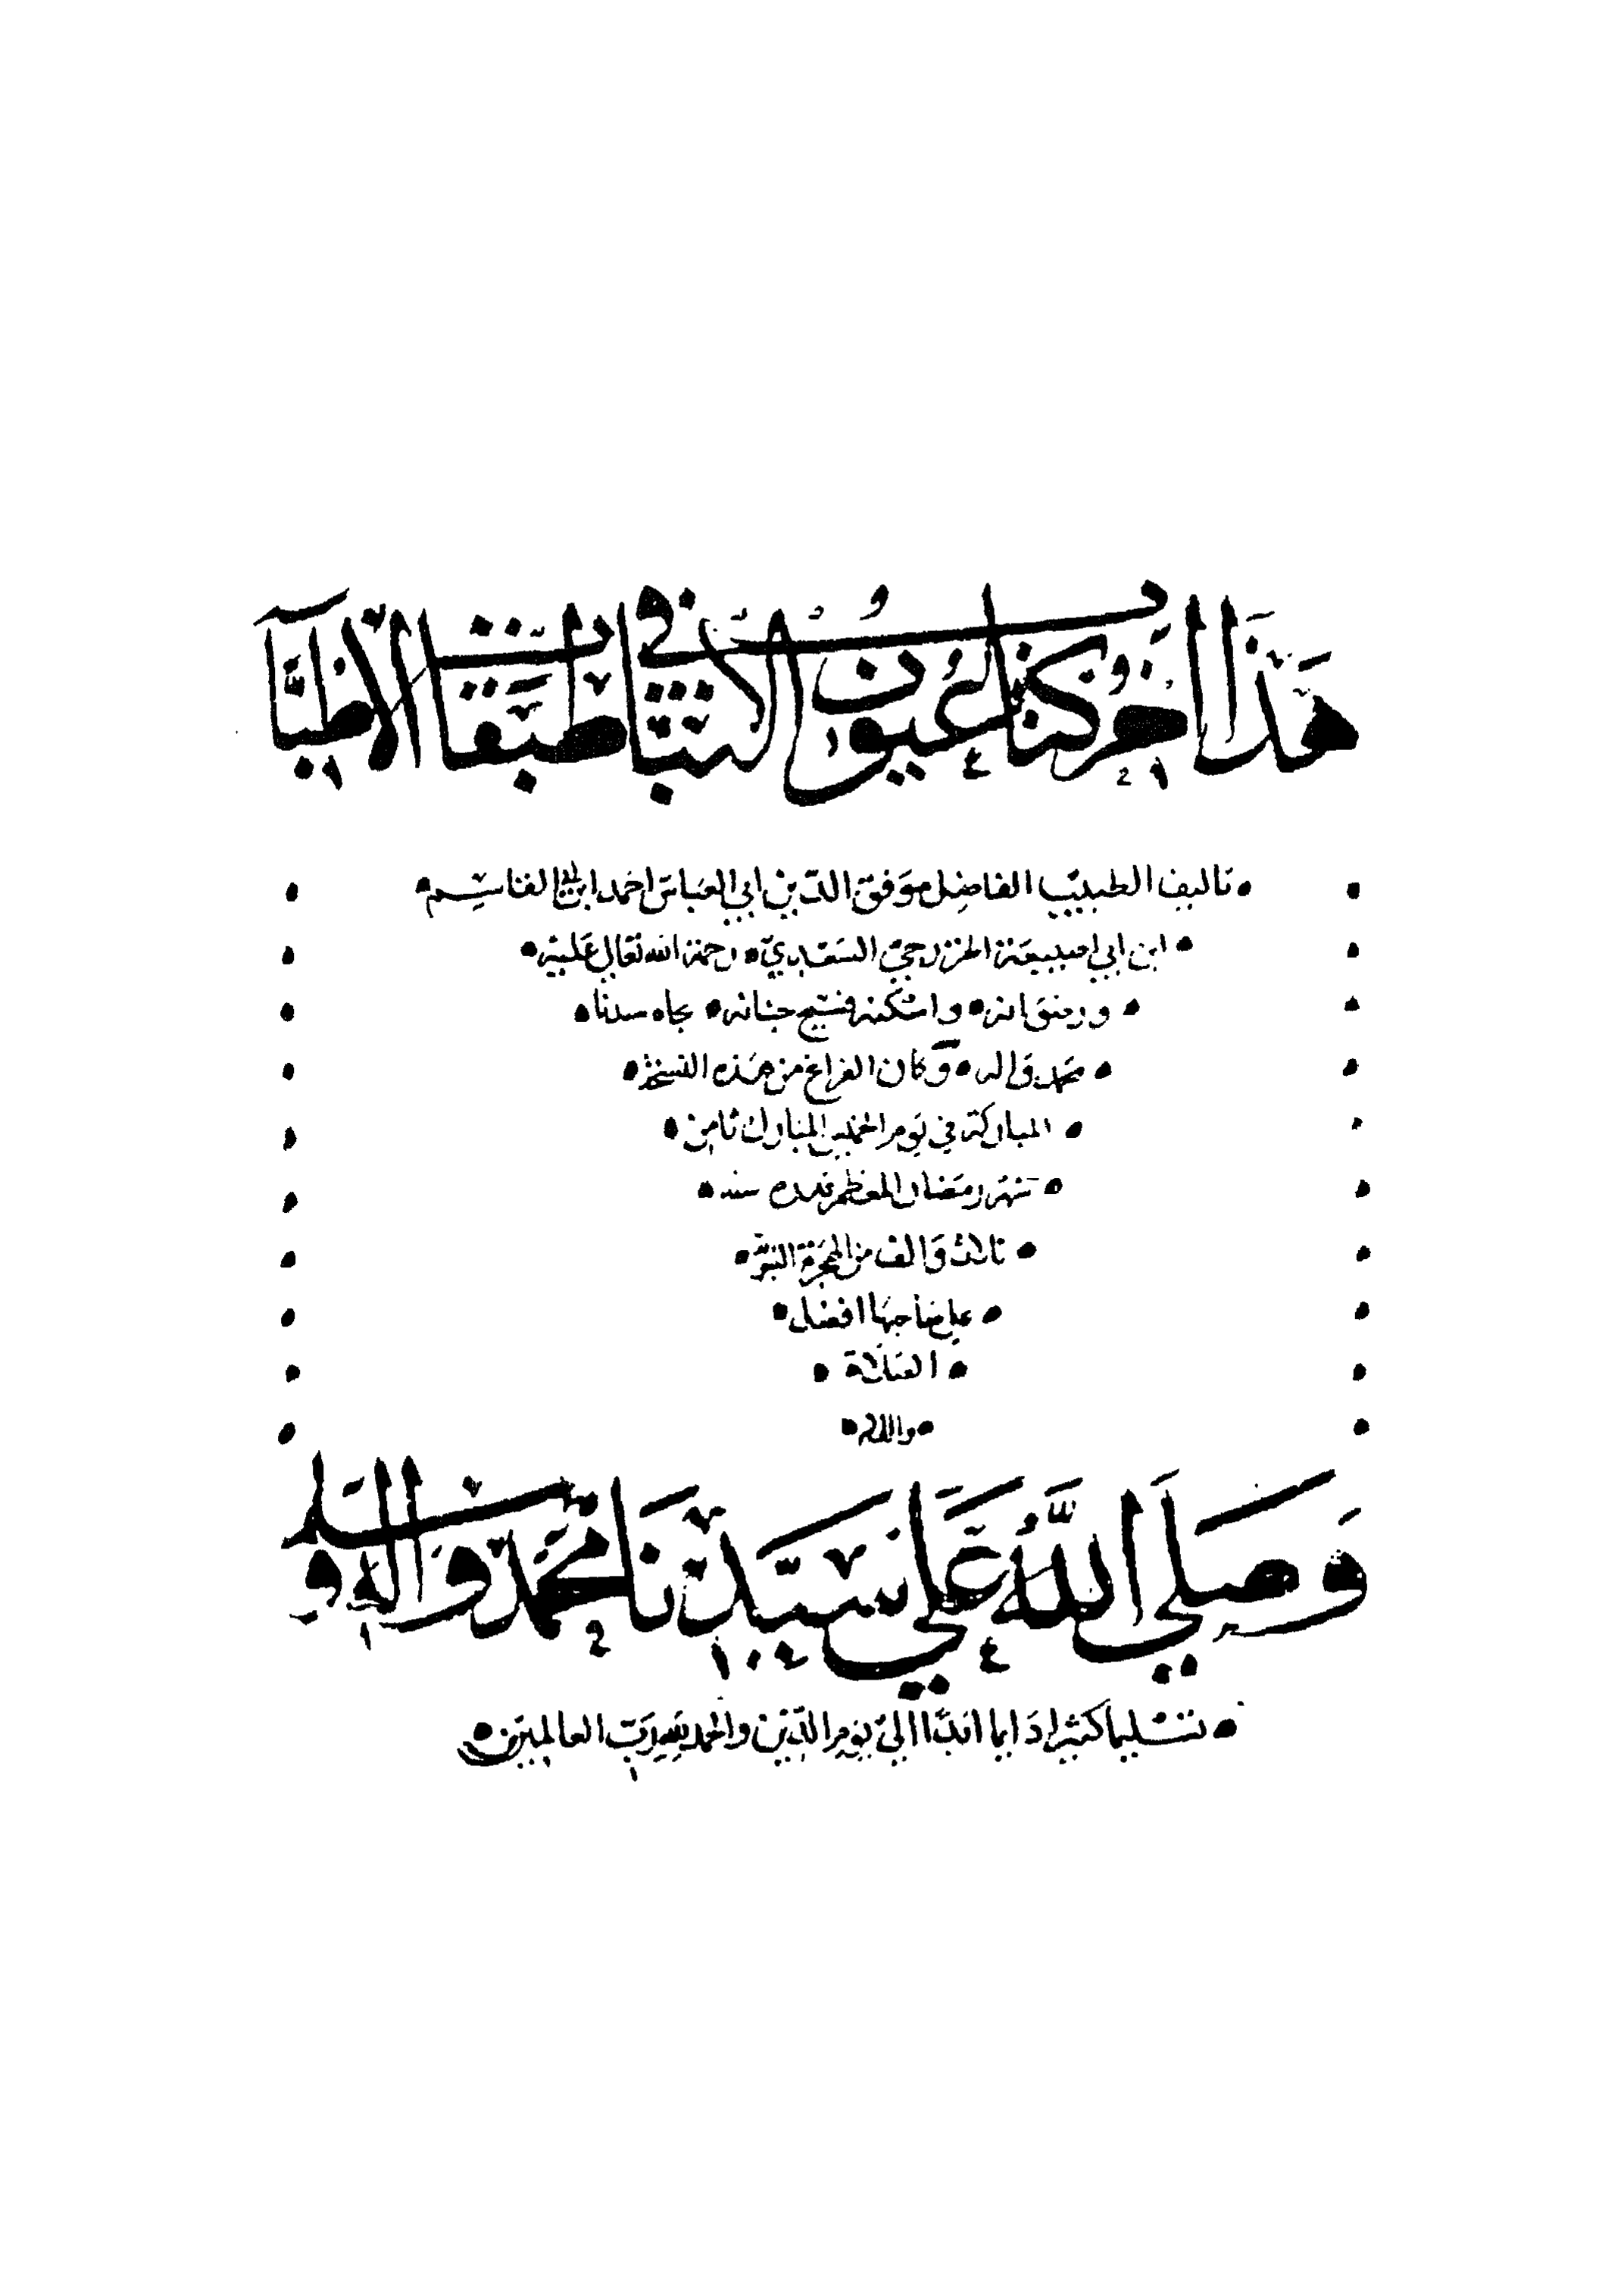 هَذَا اخر كتاب عيون الانبآ في طبقات الاطبآ
تاليف الطبيب الفاضل موفق الدين ابي العباس احمد ابن القاسم
ابن ابي اصيبيعة الخزرجي السعدي رحمة الله تعالي عليه
ورضوانه واسكنه فسيح جنانه بجاه سيدنا
محمد واله وكان الفراغ من هذه النسخة
المباركة في يوم الخميس المبارك ثامن
شهر رمضان المعظم قدره سنه
ثلاث والف من الهجرة النبوية
علي صاحبها افضل
الصلاة
والسلام
وَصَلي اللَّهُ عَلي سَيّدنَا محمّد وَاله وسلم
تسليما كثيرا دايما ابدًا الي يوم الدين والحمد لله رب العالمين